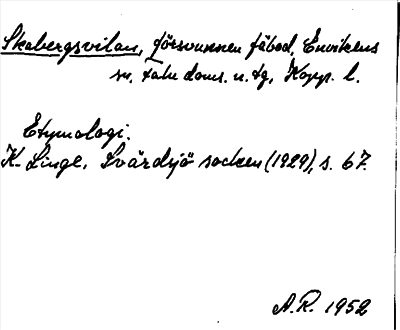 Skabergsvilan, försvunnen fäbod, Envikens
sn, Falu doms. o. tg, Kopp. l.
Etymologi.
K. Linge, Svärdsjö socken (1929), s. 67.
A.R. 1952